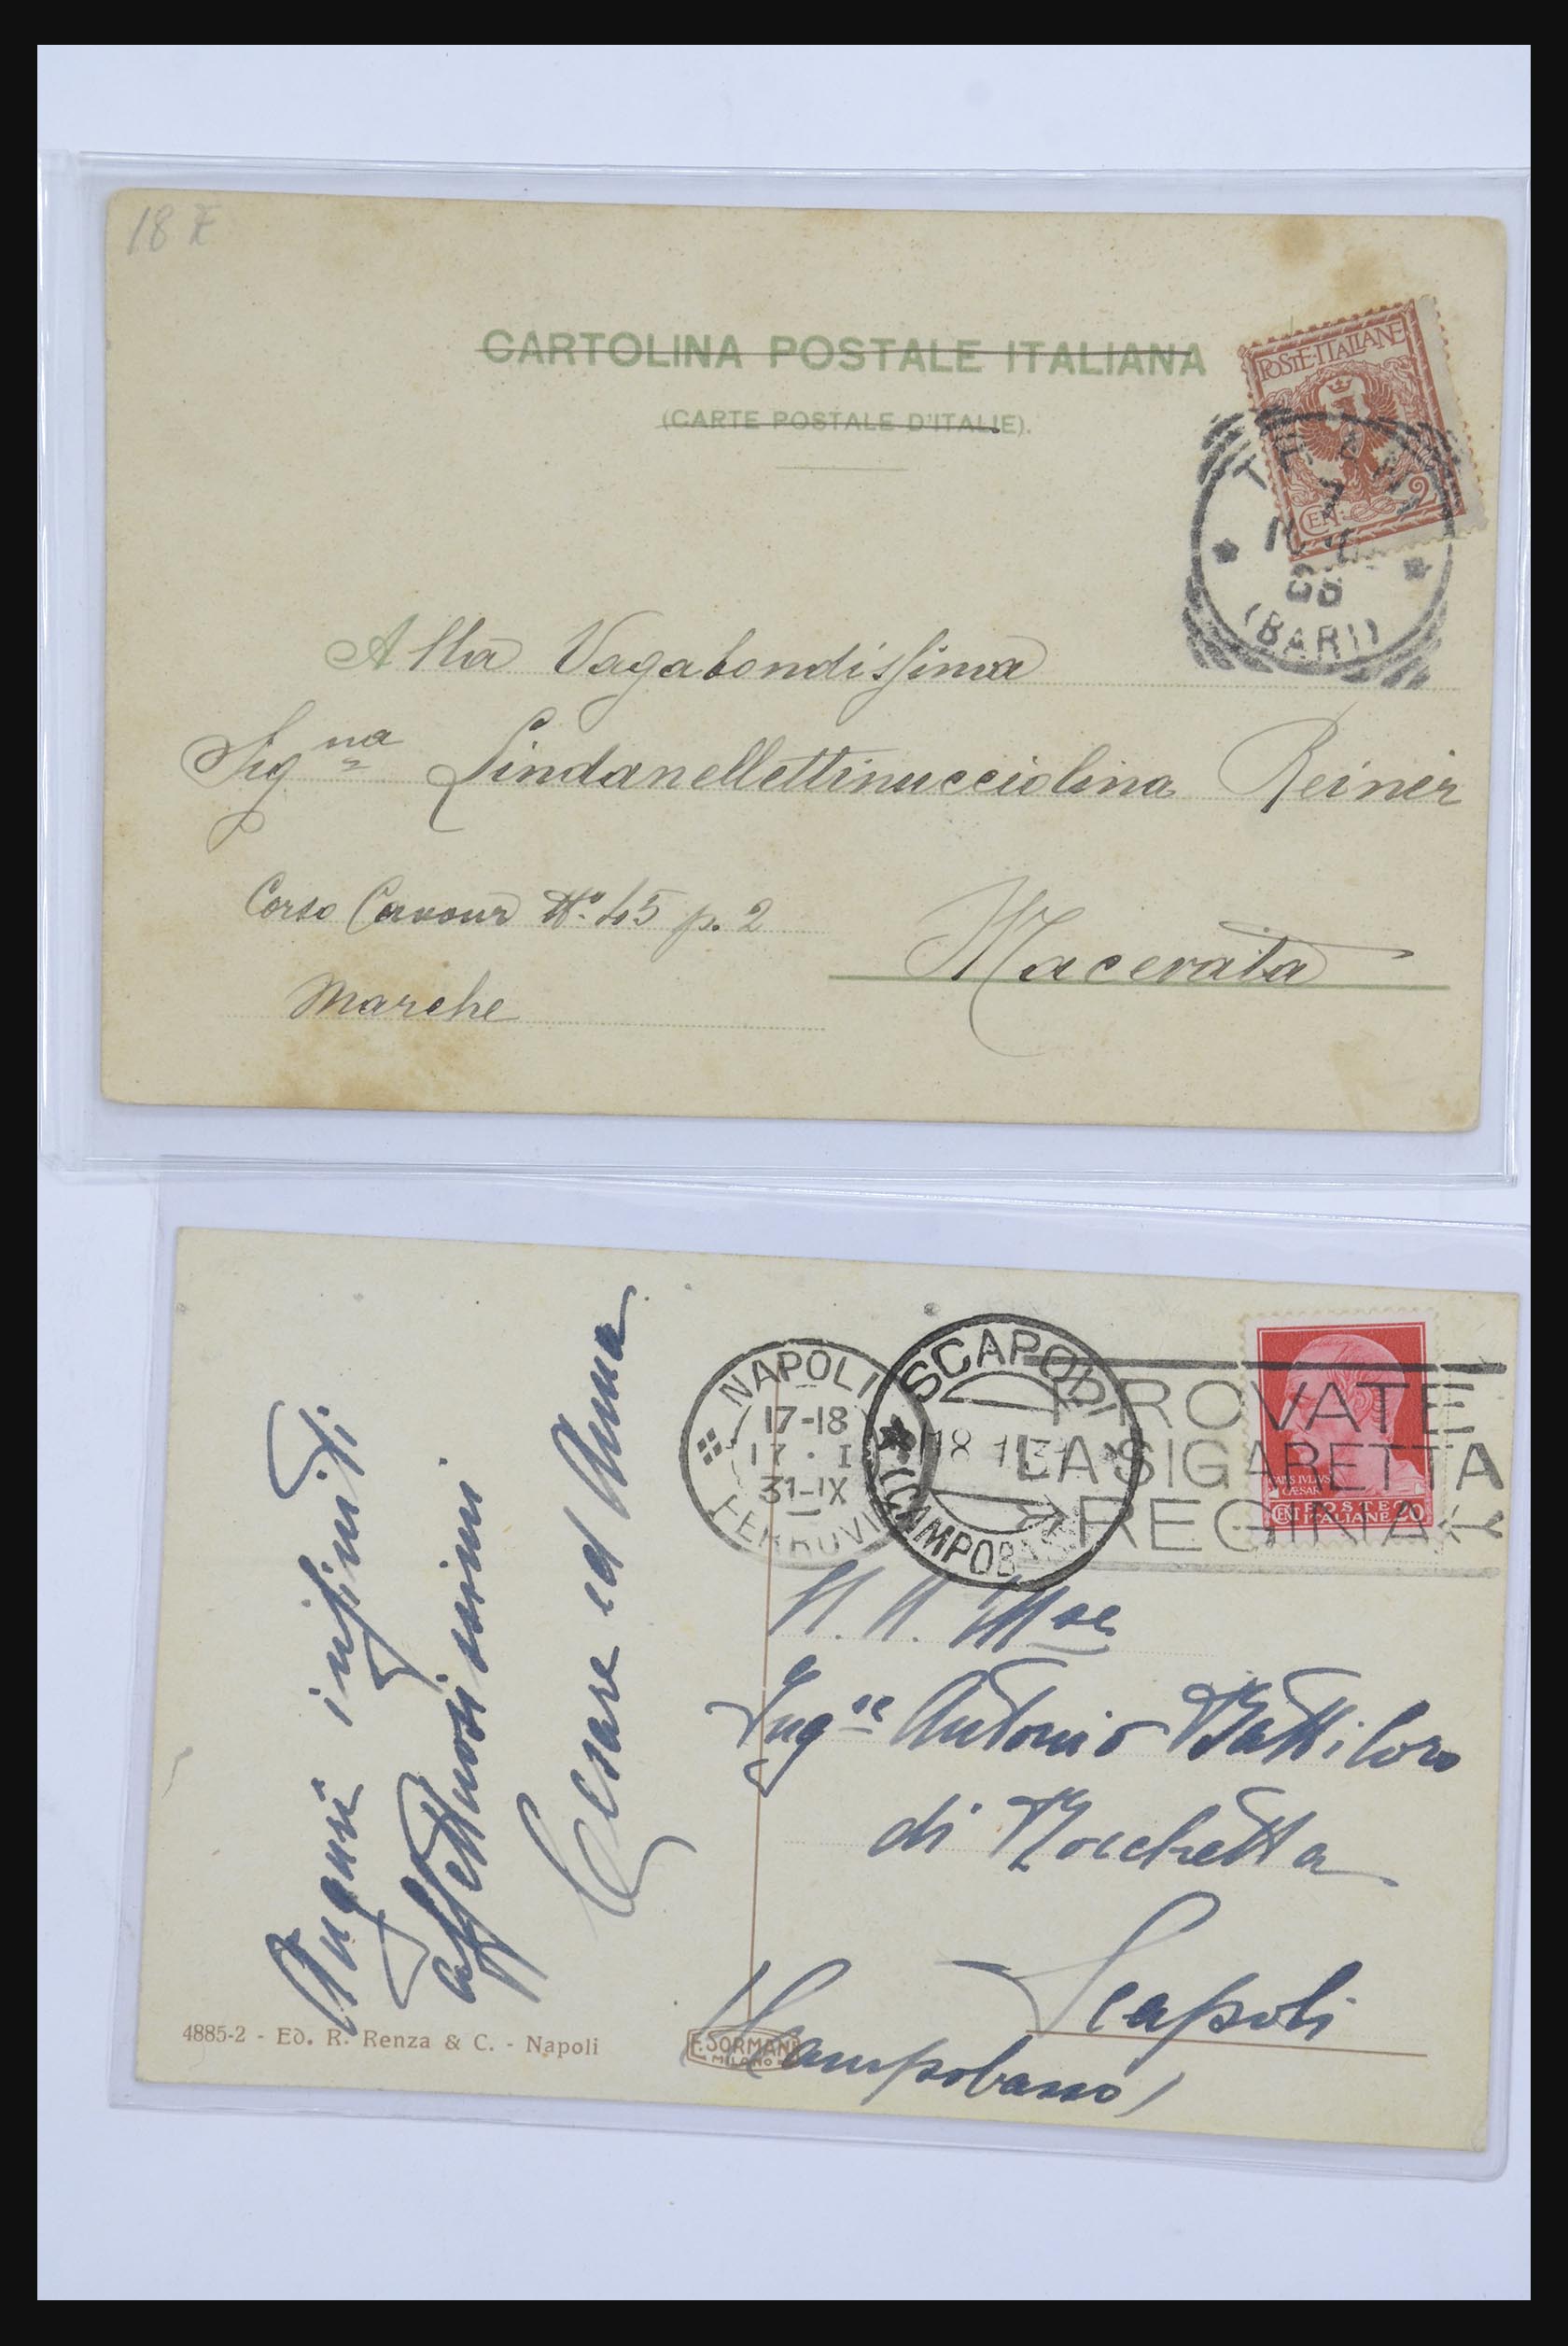 18
CARTOLINA POSTALE ITALIANA
(CARTE POSTALE D'ITALIE).
POSTE·ITALIANE
CEN. 2
7
08
(BARI)
Alla Vagabondissima
Signa Lindanellettinucciolina Reinir
Corso Cavour No. 45 p. 2
Macerata
Marche
NAPOLI
17-18
17 · I
31-IX
FERROVIA
SCAPOLI
18
(CAMPOB
PROVATE
LA SIGARETTA
REGINA
CAIVS IVLIVS
CAESAR
CENT POSTE ITALIANE 20
Auguri infiniti
affettuosissimi
Cesare ed Anna
N. N. Mse
Ingre Antonio Battiloro
di Rocchetta
Scapoli
(Campobasso)
4885-2 - Ed. R. Renza & C. - Napoli
F. SORMANI
MILANO